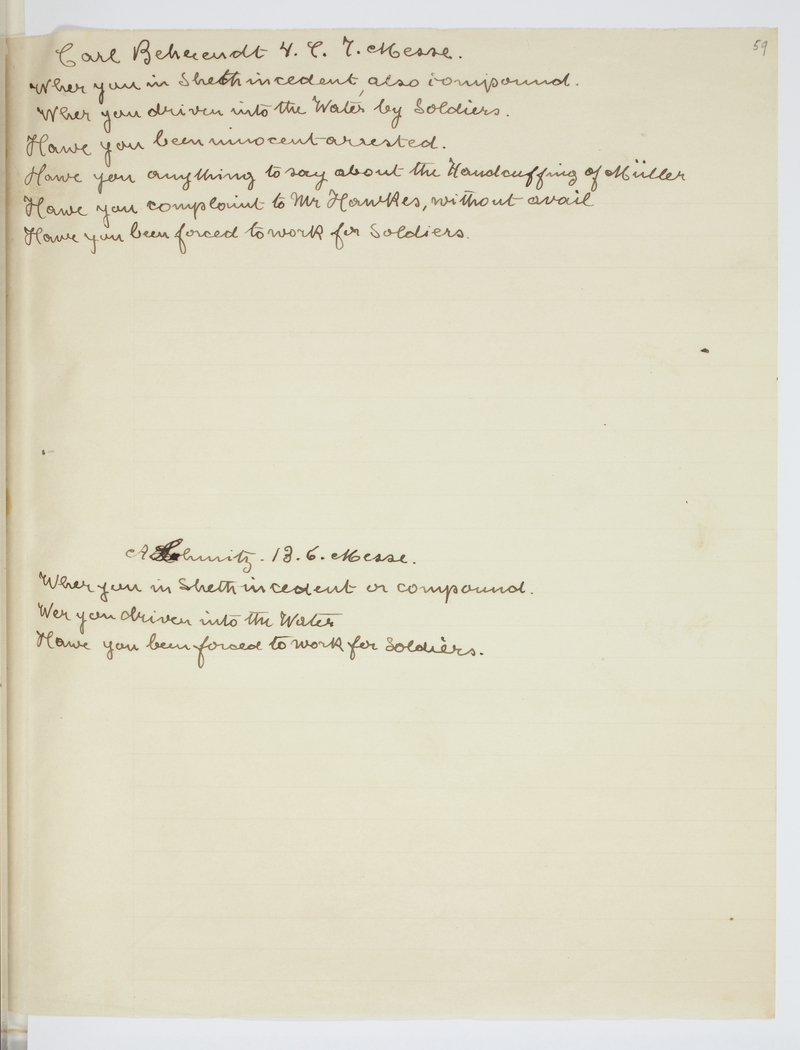 59
Carl Beherendt 4. C. 7. Messe.
Wher you in Sheth incedent, also compound.
Wher you driven into the Water by Soldiers.
Hawe you been innocent arrested.
Hawe you anything to say about the Handcuffing of Müller
Hawe you complaint to Mr Hawkes, without avail
Hawe you been forced to work for Soldiers.
A Schmitz. 13. 6. Messe.
Wher you in Sheth incedent or compound.
Wer you driven into the Water
Hawe you been forced to work for Soldiers.